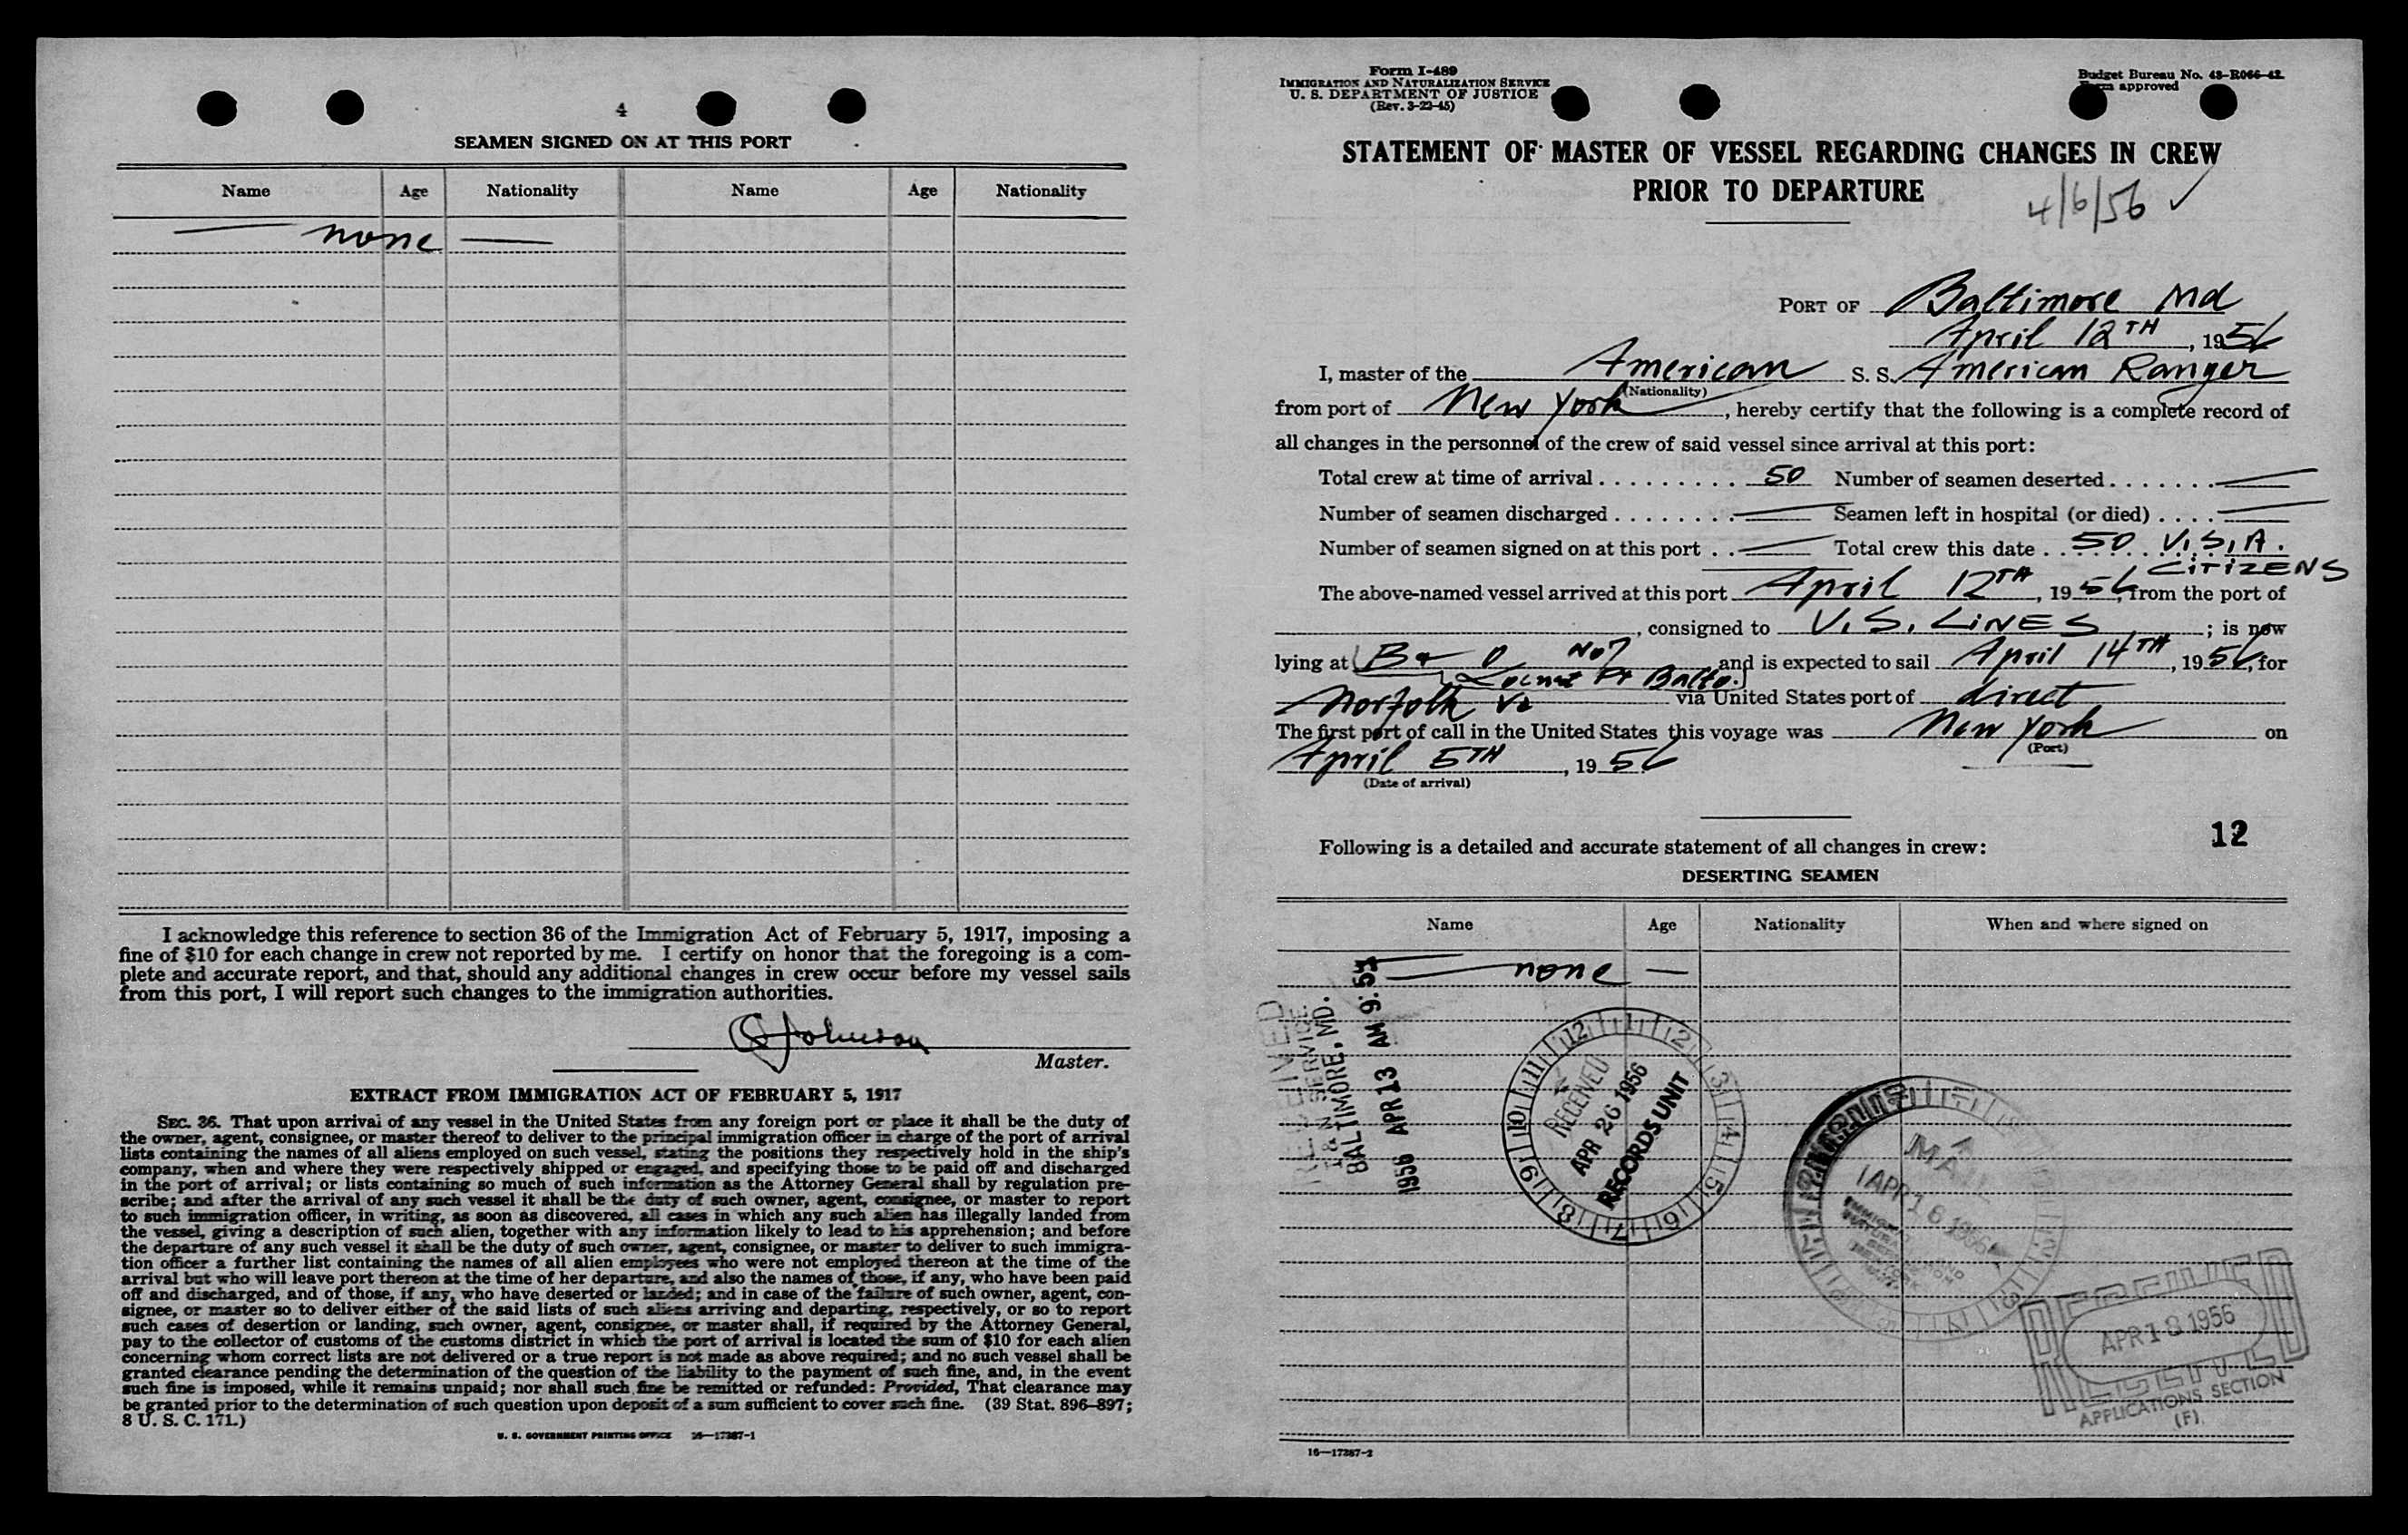 4
SEAMEN SIGNED ON AT THIS PORT
Name Age Nationality Name Age Nationality
none
I acknowledge this reference to section 36 of the Immigration Act of February 5, 1917, imposing a
fine of $10 for each change in crew not reported by me. I certify on honor that the foregoing is a com-
plete and accurate report, and that, should any additional changes in crew occur before my vessel sails
from this port, I will report such changes to the immigration authorities.
Johnson
Master.
EXTRACT FROM IMMIGRATION ACT OF FEBRUARY 5, 1917
SEC. 36. That upon arrival of any vessel in the United States from any foreign port or place it shall be the duty of
the owner, agent, consignee, or master thereof to deliver to the principal immigration officer in charge of the port of arrival
lists containing the names of all aliens employed on such vessel, stating the positions they respectively hold in the ship's
company, when and where they were respectively shipped or engaged, and specifying those to be paid off and discharged
in the port of arrival; or lists containing so much of such information as the Attorney General shall by regulation pre-
scribe; and after the arrival of any such vessel it shall be the duty of such owner, agent, consignee, or master to report
to such immigration officer, in writing, as soon as discovered, all cases in which any such alien has illegally landed from
the vessel, giving a description of such alien, together with any information likely to lead to his apprehension; and before
the departure of any such vessel it shall be the duty of such owner, agent, consignee, or master to deliver to such immigra-
tion officer a further list containing the names of all alien employees who were not employed thereon at the time of the
arrival but who will leave port thereon at the time of her departure, and also the names of those, if any, who have been paid
off and discharged, and of those, if any, who have deserted or landed; and in case of the failure of such owner, agent, con-
signee, or master so to deliver either of the said lists of such aliens arriving and departing, respectively, or so to report
such cases of desertion or landing, such owner, agent, consignee, or master shall, if required by the Attorney General,
pay to the collector of customs of the customs district in which the port of arrival is located the sum of $10 for each alien
concerning whom correct lists are not delivered or a true report is not made as above required; and no such vessel shall be
granted clearance pending the determination of the question of the liability to the payment of such fine, and, in the event
such fine is imposed, while it remains unpaid; nor shall such fine be remitted or refunded: Provided, That clearance may
be granted prior to the determination of such question upon deposit of a sum sufficient to cover such fine. (39 Stat. 896–897;
8 U. S. C. 171.)
U. S. GOVERNMENT PRINTING OFFICE 16—17287-1
Form I-489
IMMIGRATION AND NATURALIZATION SERVICE
U. S. DEPARTMENT OF JUSTICE
(Rev. 3-22-45)
Budget Bureau No. 43-R066-42.
approved
STATEMENT OF MASTER OF VESSEL REGARDING CHANGES IN CREW
PRIOR TO DEPARTURE
4/6/56 ✓
PORT OF Baltimore Md
April 12TH, 1956
I, master of the American S. S. American Ranger
(Nationality)
from port of New York, hereby certify that the following is a complete record of
all changes in the personnel of the crew of said vessel since arrival at this port:
Total crew at time of arrival . . . . . . . . . . 50 Number of seamen deserted . . . . . . .
Number of seamen discharged . . . . . . . . Seamen left in hospital (or died) . . . .
Number of seamen signed on at this port . . Total crew this date . . 50 U.S.A.
CITIZENS
The above-named vessel arrived at this port April 12TH, 1956, from the port of
, consigned to U.S. LINES ; is now
lying at B & O No 7 and is expected to sail April 14TH, 1956, for
Locust Pt Balto.
Norfolk Va via United States port of direct
The first port of call in the United States this voyage was New York on
(Port)
April 5TH, 1956
(Date of arrival)
12
Following is a detailed and accurate statement of all changes in crew:
DESERTING SEAMEN
Name Age Nationality When and where signed on
none —
RECEIVED
I & N SERVICE
BALTIMORE, MD.
1956 APR 13 AM 9:
12 1 2 3 4 5 6 7 8 9 10 11
RECEIVED
APR 26 1956
RECORDS UNIT
MAIL
APR 16 1956
RECEIVED
APR 18 1956
APPLICATIONS SECTION
(F)
16—17287-2